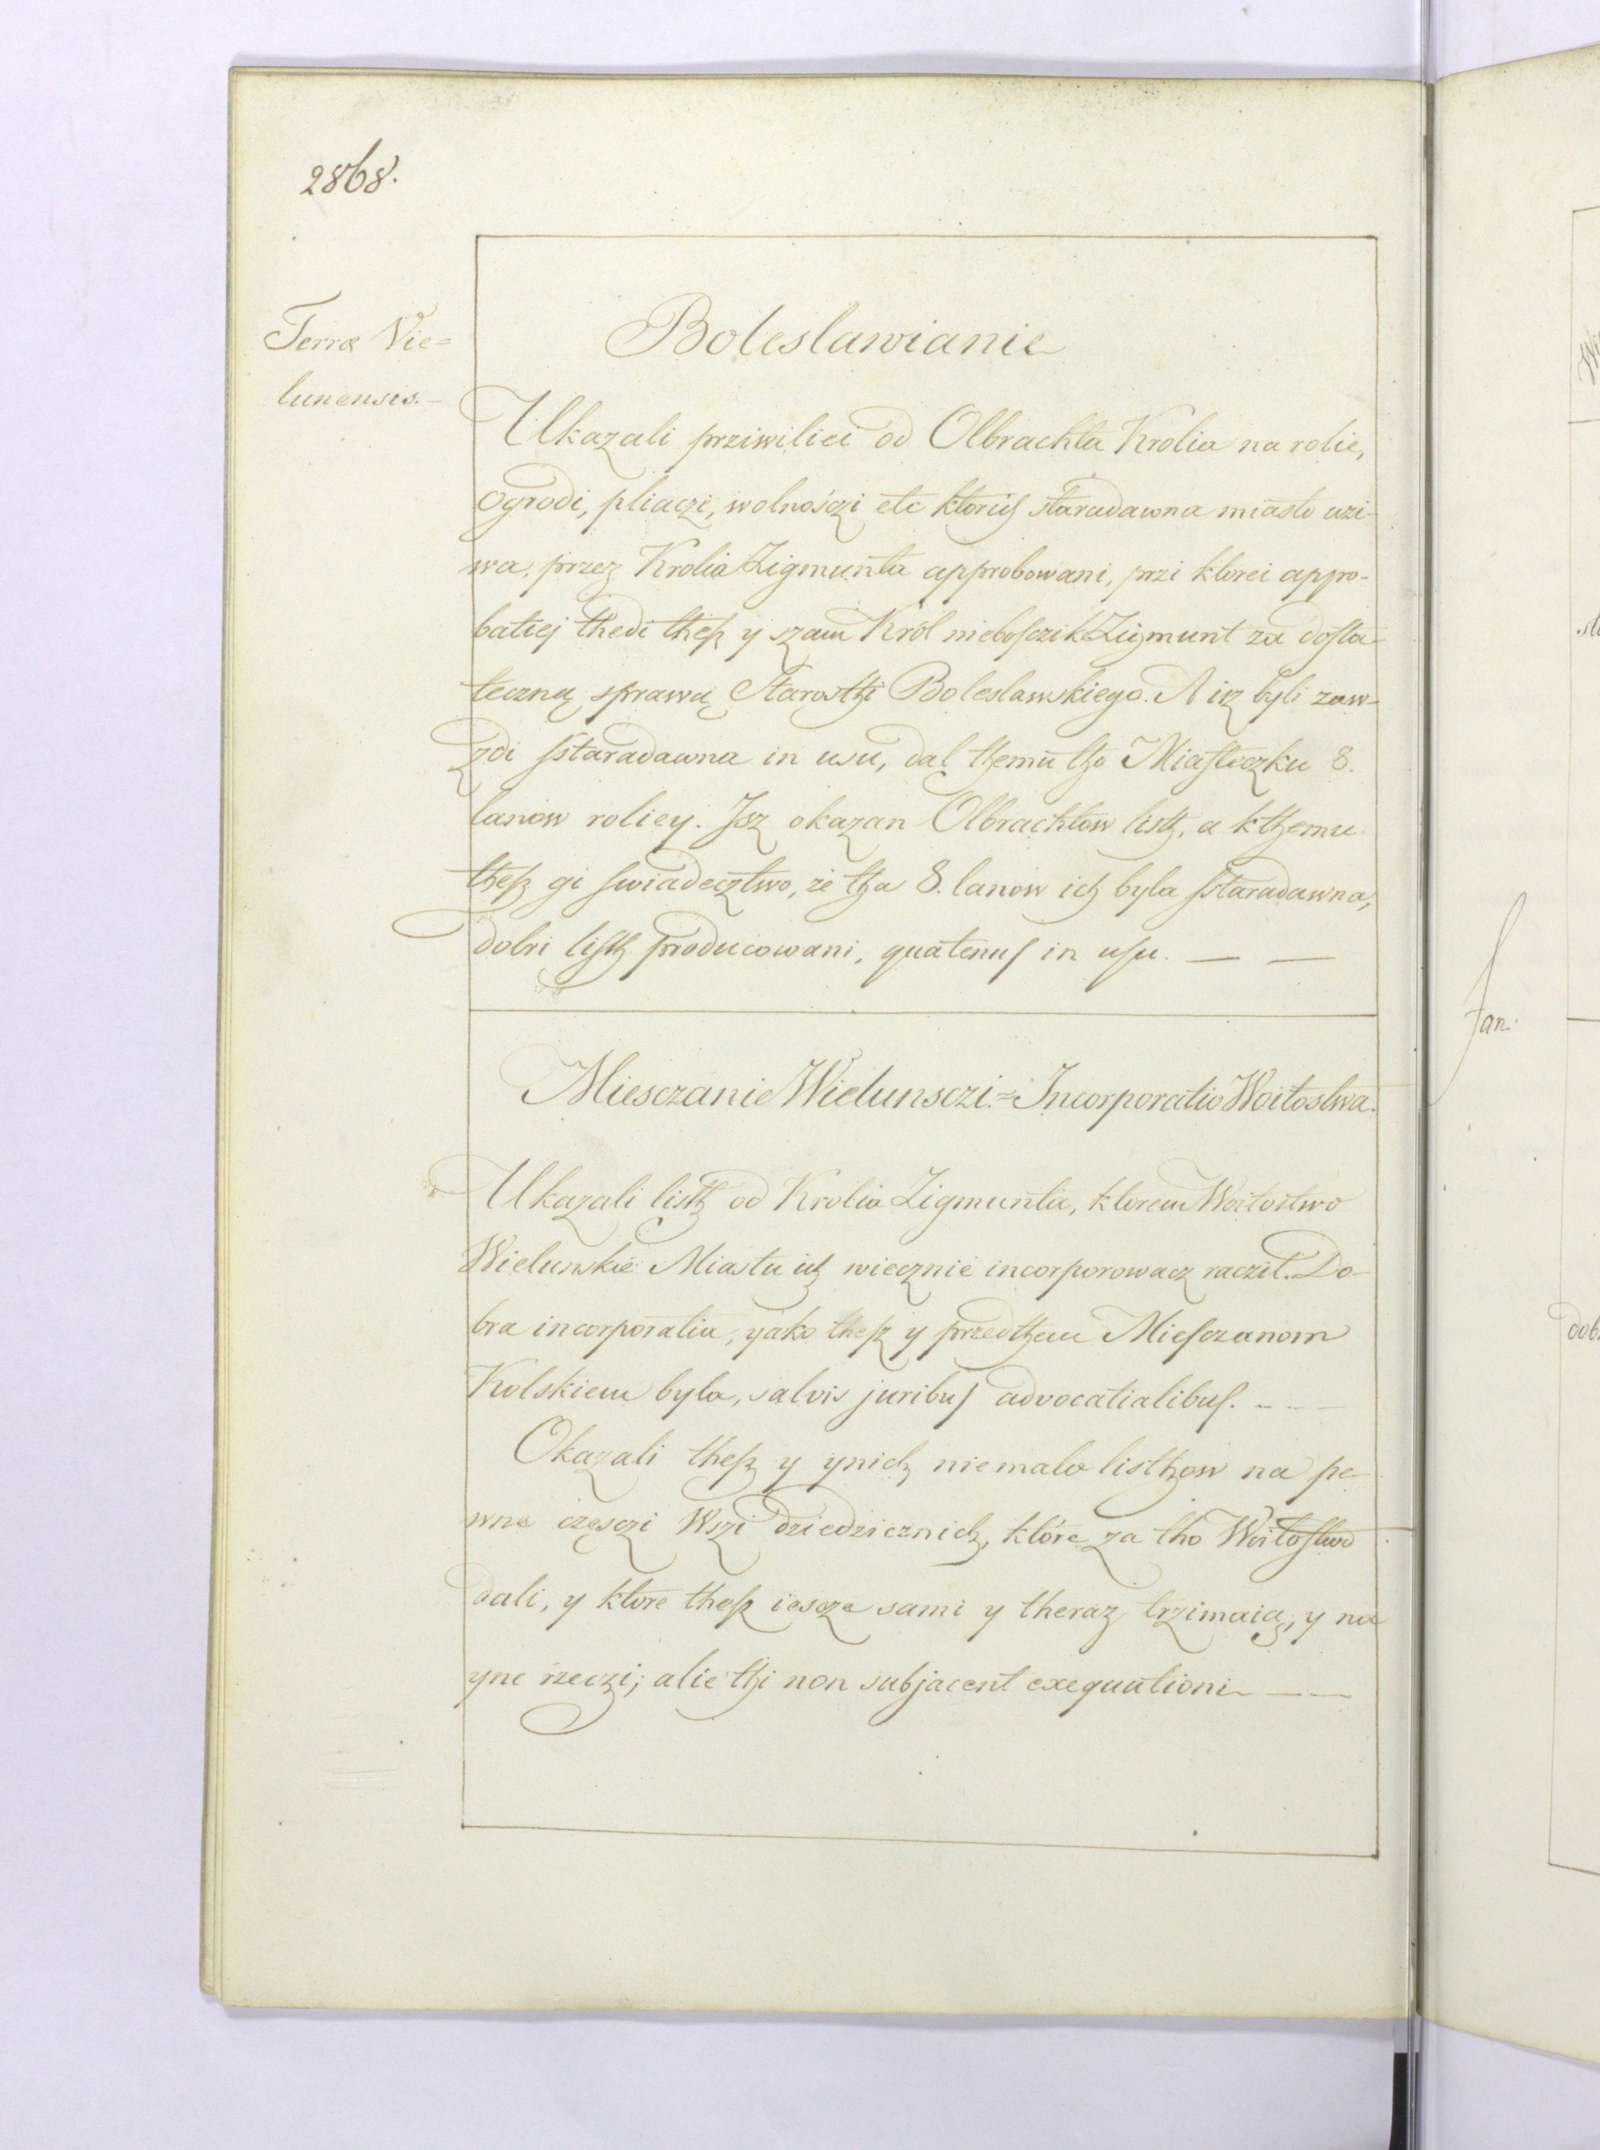 2868.
Terræ Vie=
lunensis.
Boleslawianie
Ukazali prziwiliei od Olbrachta Krolia na rolie,
ogrodi, pliaczi, wolnośczi etc ktorich staradawna miasto uzi-
wa, przez Krolia Zigmunta approbowani, przi ktorei appro-
batiej thedi thesz y szam Król nieboſczik Zigmunt za doſta-
teczną sprawą Starosthi Boleslawskiego. A isz byli zaw-
zdi ſstaradawna in usu, dal themu tho Miaſteczku 8.
lanow roliey. Jsz okazan Olbrachtow listh, a kthemu
thesz gi ſwiadecztwo, że tha 8. lanow ich byla ſstaradawna,
dobri liſth producowani, quatenuſ in uſu. — —
Miesczanie Wielunsczi. = Incorporatio Woitostwa.
Ukazali listh od Krolia Zigmunta, ktorem Woitostwo
Wielunskie Miastu ich wiecznie incorporowacz raczil. Do-
bra incorporatia, yako thesz y przedthem Mieſczanom
Kolskiem byla, salvis juribuſ advocatialibuſ. — —
Okazali thesz y ynich niemalo listhow na pe-
wne częsczi Wszi dziedzicznich, które za tho Woitoſtwo
dali, y ktore thesz iescze sami y theraz trzimaią, y na
yne rzeczi; alie thi non subjacent exequutioni — —
Fan.
dob